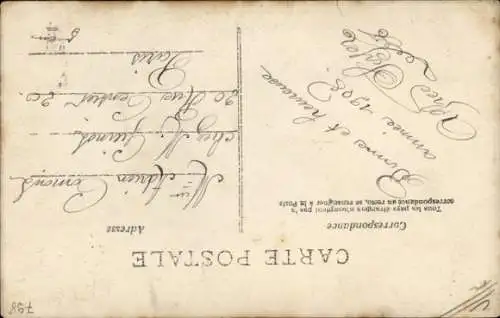 CARTE POSTALE
Correspondance
Tous les pays étrangers n'acceptent pas la
correspondance au recto, se renseigner à la Poste
Adresse
Bonne et heureuse
année 1905
Mr Adrien Edmond
chez M. Guinot
20 Rue Censier 20
Paris
798